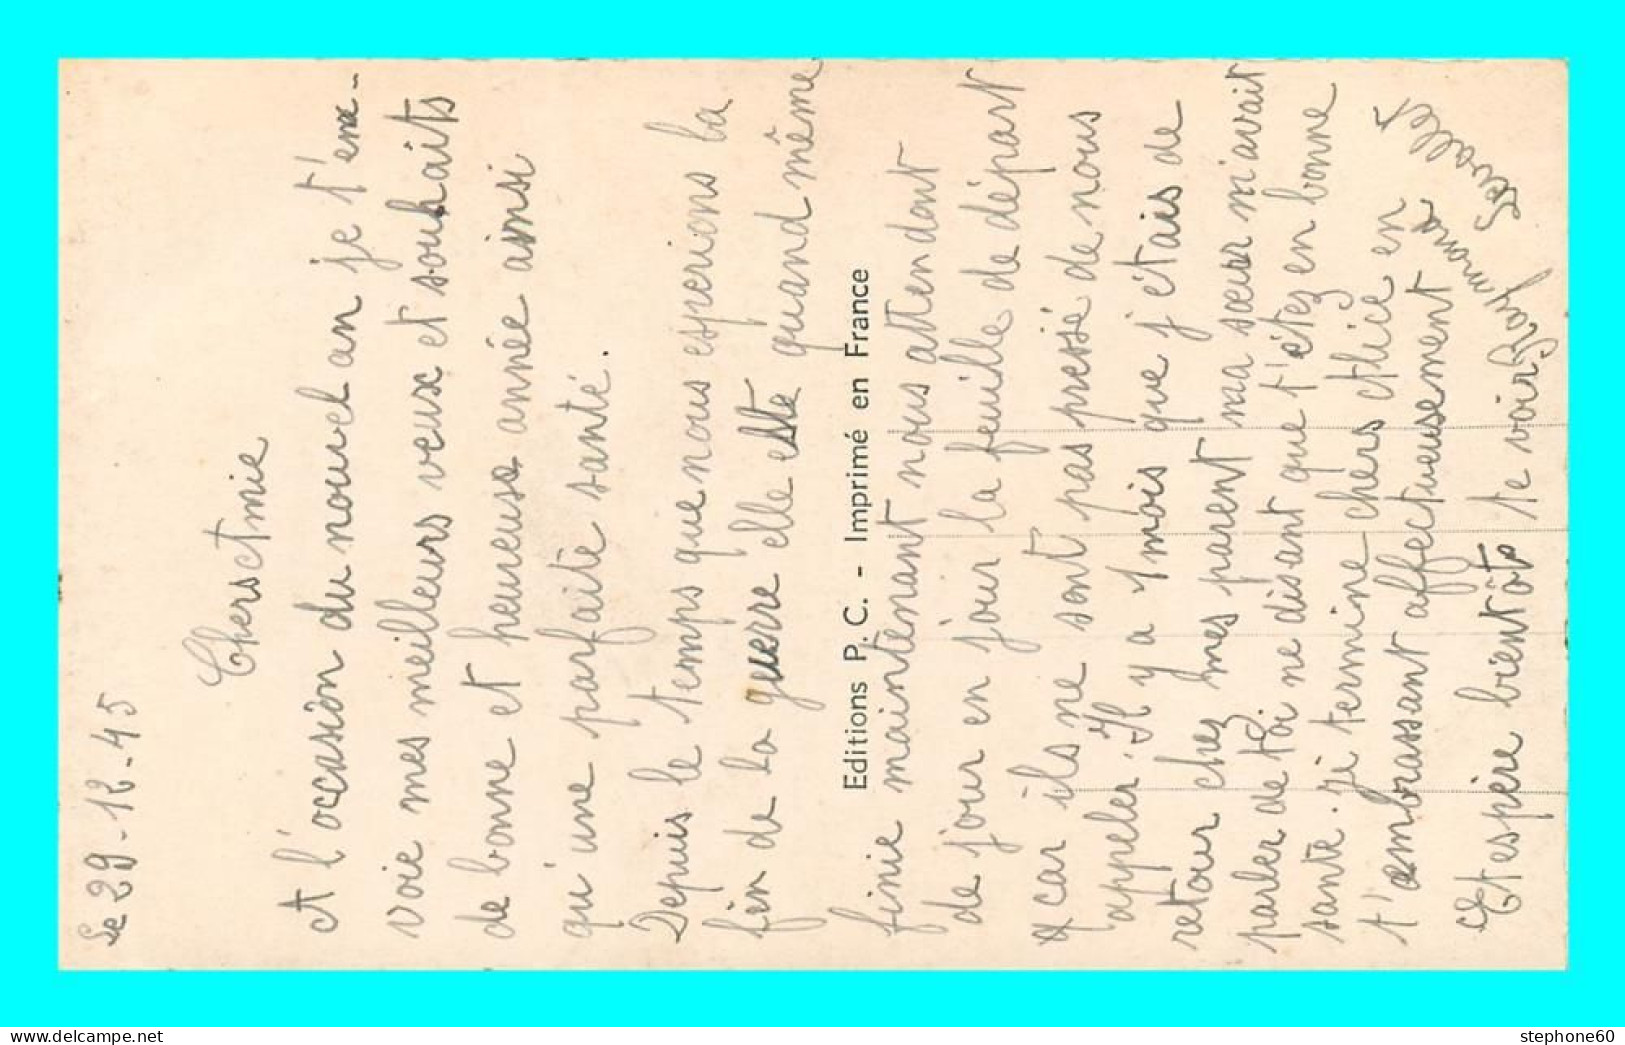 Le 29-12-45
Chers et mie
A l'occasion du nouvel an je t'en-
voie mes meilleurs veux et souhaits
de bonne et heureuse année ainsi
qu'une parfaite santé.
Depuis le temps que nous esperions la
fin de la guerre elle este quand même
Editions P. C. - Imprimé en France
finie maintenant nous attendont
de jour en jour la feuille de départ
car ils ne sont pas pressé de nous
appeler. Il y a 1 mois que j'étais de
retour chez mes parent ma sœur m'avait
parler de toi me disant que t'étez en bonne
santé. je termine chers Alice en
t'embrassant affectueusement
Et espère bientôt te voir
Raymond
stephone60